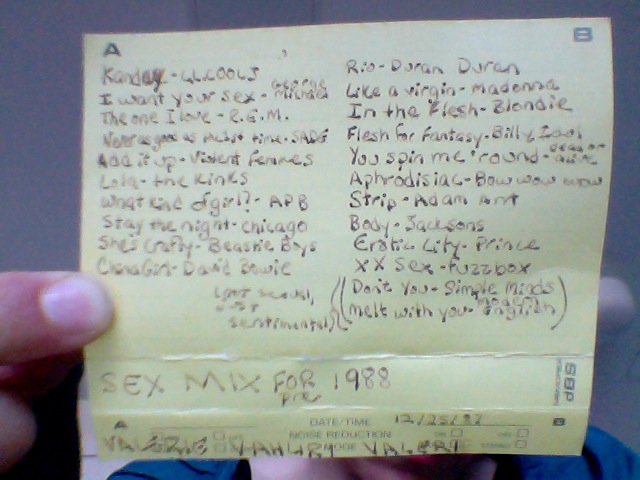 A
Kanday - LL COOL J
I want your sex - George Michael
The one I love - R.E.M.
Never as good as the first time - SADE
Add it up - Violent Femmes
Lola - the Kinks
What kind of girl? - APB
Stay the night - chicago
She's Crafty - Beastie Boys
China Girl - David Bowie
B
Rio - Duran Duran
Like a virgin - Madonna
In the Flesh - Blondie
Flesh for Fantasy - Billy Idol
You spin me 'round - dead or alive
Aphrodisiac - Bow wow wow
Strip - Adam Ant
Body - Jacksons
Erotic City - Prince
XX Sex - Fuzzbox
(not sexual, just sentimental)
(Don't You - Simple Minds
melt with you - modern English)
SEX MIX FOR 1988
SBP
A DATE/TIME 12/25/87 B
NOISE REDUCTION
VALERIE